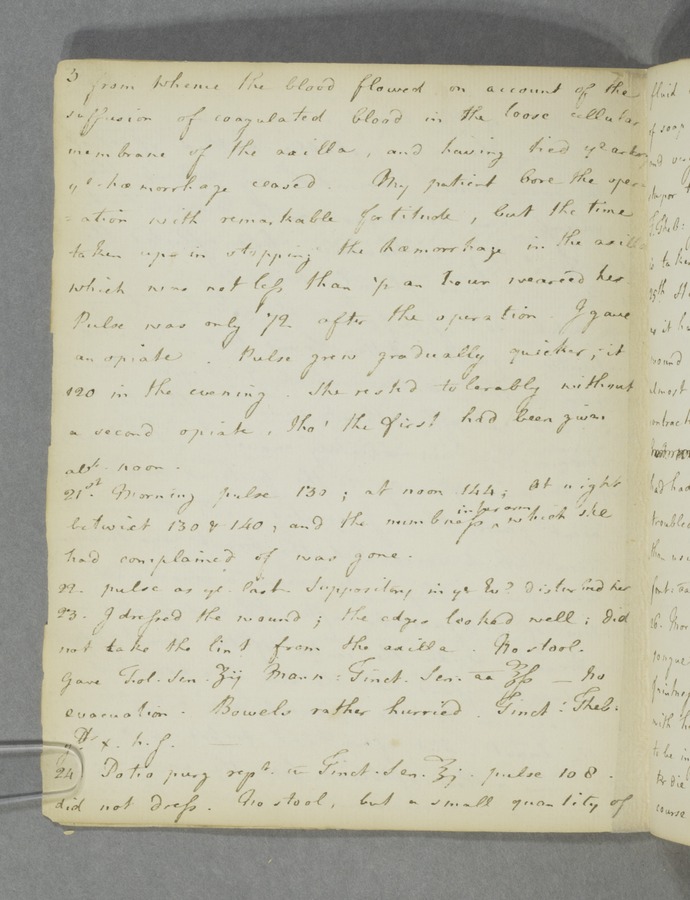 3
from whence the blood flowed on account of the
suffusion of coagulated blood in the loose cellular
membrane of the axilla, and having tied ye artery
ye hæmorrhage ceased. My patient bore the oper
=ation with remarkable fortitude, but the time
taken up in stopping the hæmorrhage in the axilla
which was not less than ½ an hour wearied her
Pulse was only 72 after the operation. I gave
an opiate. Pulse grew gradually quicker; it
120 in the evening. She rested tolerably without
a second opiate, Tho' the first had been given
abt. noon.
21st. Morning pulse 130; at noon 144; At night
betwixt 130 & 140; and the numbness in her arm, which she
had complained of was gone.
22. pulse as ye last. Suppository in ye disturbed her
23. I dressed the wound; the edges looked well; did
not take the lint from the axilla. No stool.
Gave Fol. Sen. ʒij Mann: Tinct. Sen. aa ℥ß — No
evacuation. Bowels rather hurried. Tinct: Theb:
x. h.s.
24 Potio purg rept. c Tinct. Sen. ʒj. pulse 108.
did not dress. No stool, but a small quantity of
fluid
of soap
and
25th
wound
almost
contract
had had
26. Mor
tongue
with
to be in
course